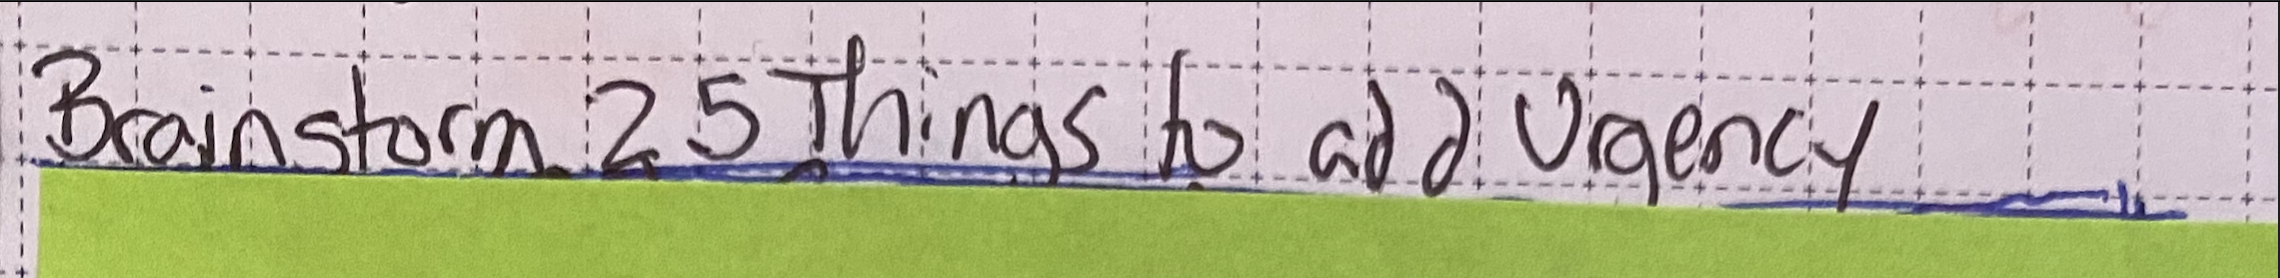 Brainstorm 25 Things to add Urgency